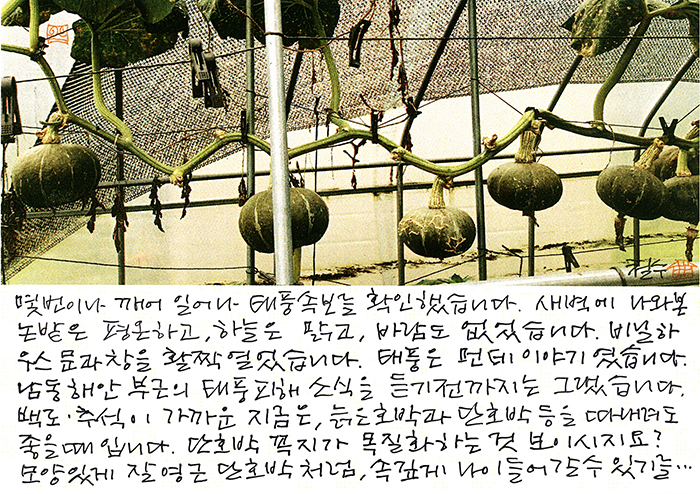 철수
몇번이나 깨어 일어나 태풍속보를 확인했습니다. 새벽에 나와본
논밭은 평온하고, 하늘은 맑고, 바람도 없었습니다. 비닐하
우스 문과 창을 활짝 열었습니다. 태풍은 먼데 이야기였습니다.
남동해안 부근의 태풍피해 소식을 듣기전까지는 그랬습니다.
백로·추석이 가까운 지금은, 늙은호박과 단호박 등을 따내려도
좋을때입니다. 단호박 꼭지가 목질화하는 것 보이시지요?
모양있게 잘 영근 단호박처럼, 속깊게 나이들어갈수 있기를…